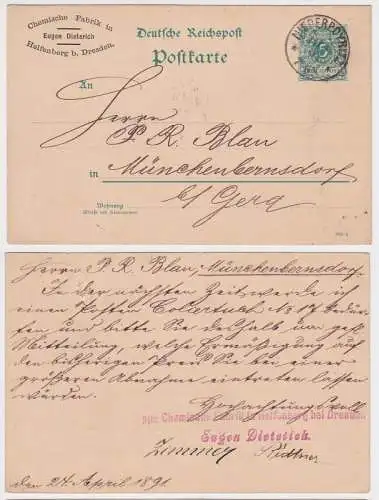 Chemische Fabrik in
Eugen Dieterich
Helfenberg b. Dresden.
Deutsche Reichspost
Postkarte
NIEDERPOYRITZ
An
Herrn
P. R. Blau
in Münchenbernsdorf
b/ Gera
Wohnung
(Straße und Hausnummer)
Herrn P. R. Blau, Münchenbernsdorf.
In der nächsten Zeit werde ich
einen Posten Colartuch No 17 bedür-
fen und bitte Sie deshalb um gefl.
Mitteilung, welche Ermäßigung auf
den bisherigen Preis Sie bei einer
größeren Abnahme eintreten lassen
würden.
Hochachtungsvoll
ppa Chemische Fabrik in Helfenberg bei Dresden.
Eugen Dieterich.
den 24. April 1891.